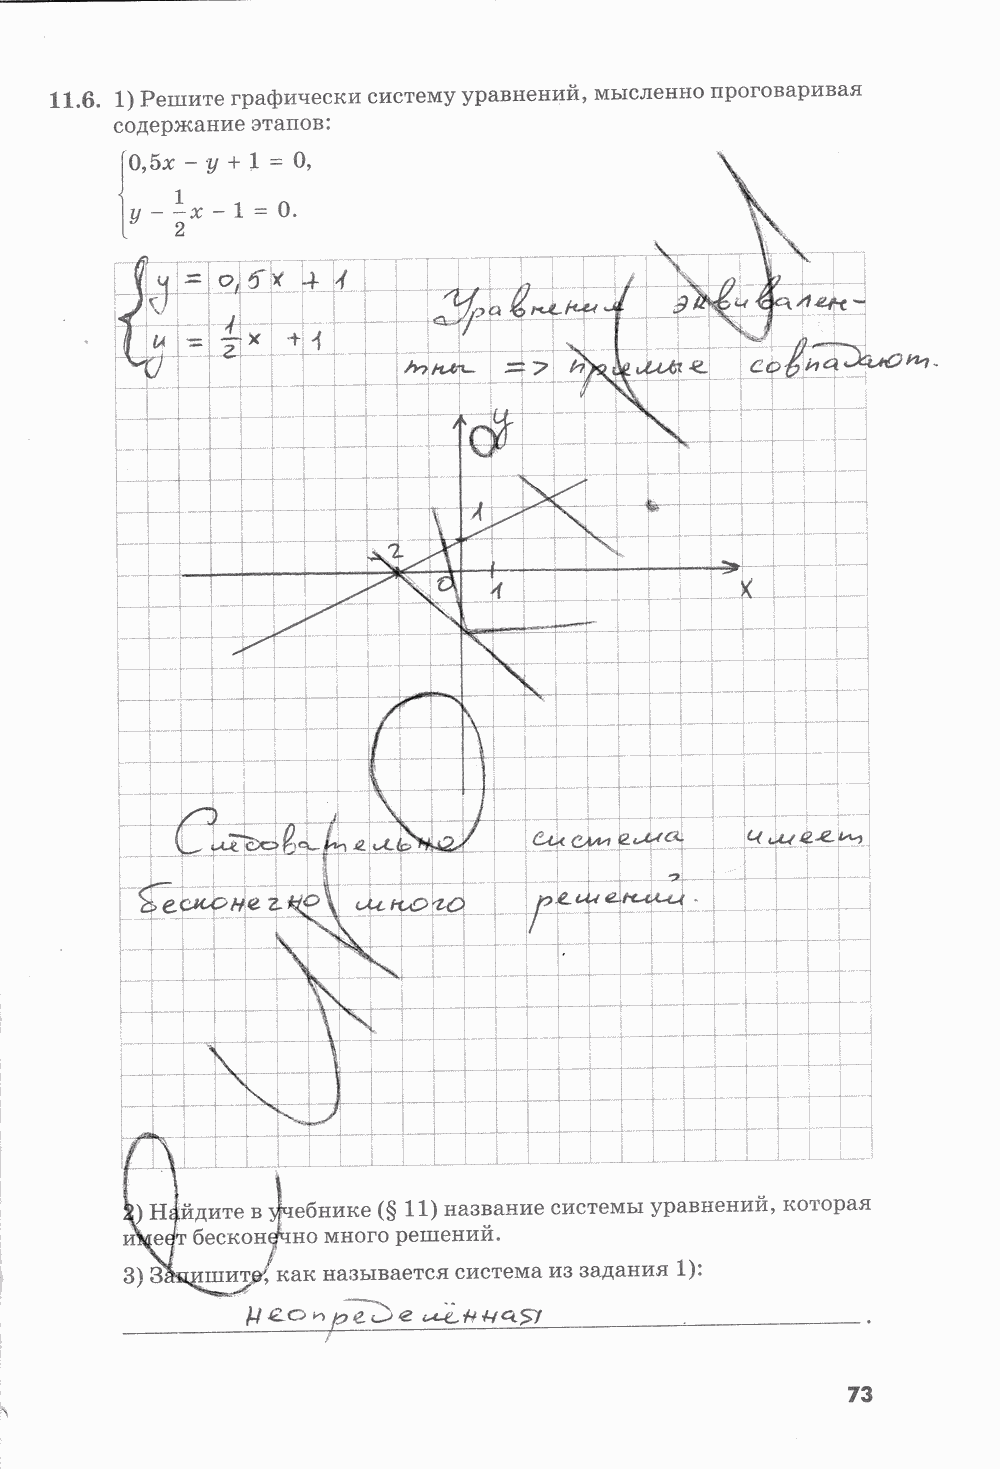 11.6. 1) Решите графически систему уравнений, мысленно проговаривая
содержание этапов:
0,5x − y + 1 = 0,
y − 1/2 x − 1 = 0.
y = 0,5x + 1
y = 1/2 x + 1
Уравнения эквивален-
тны => прямые совпадают.
y
1
-2
0
1
x
Следовательно система имеет
бесконечно много решений.
2) Найдите в учебнике (§ 11) название системы уравнений, которая
имеет бесконечно много решений.
3) Запишите, как называется система из задания 1):
неопределённая.
73